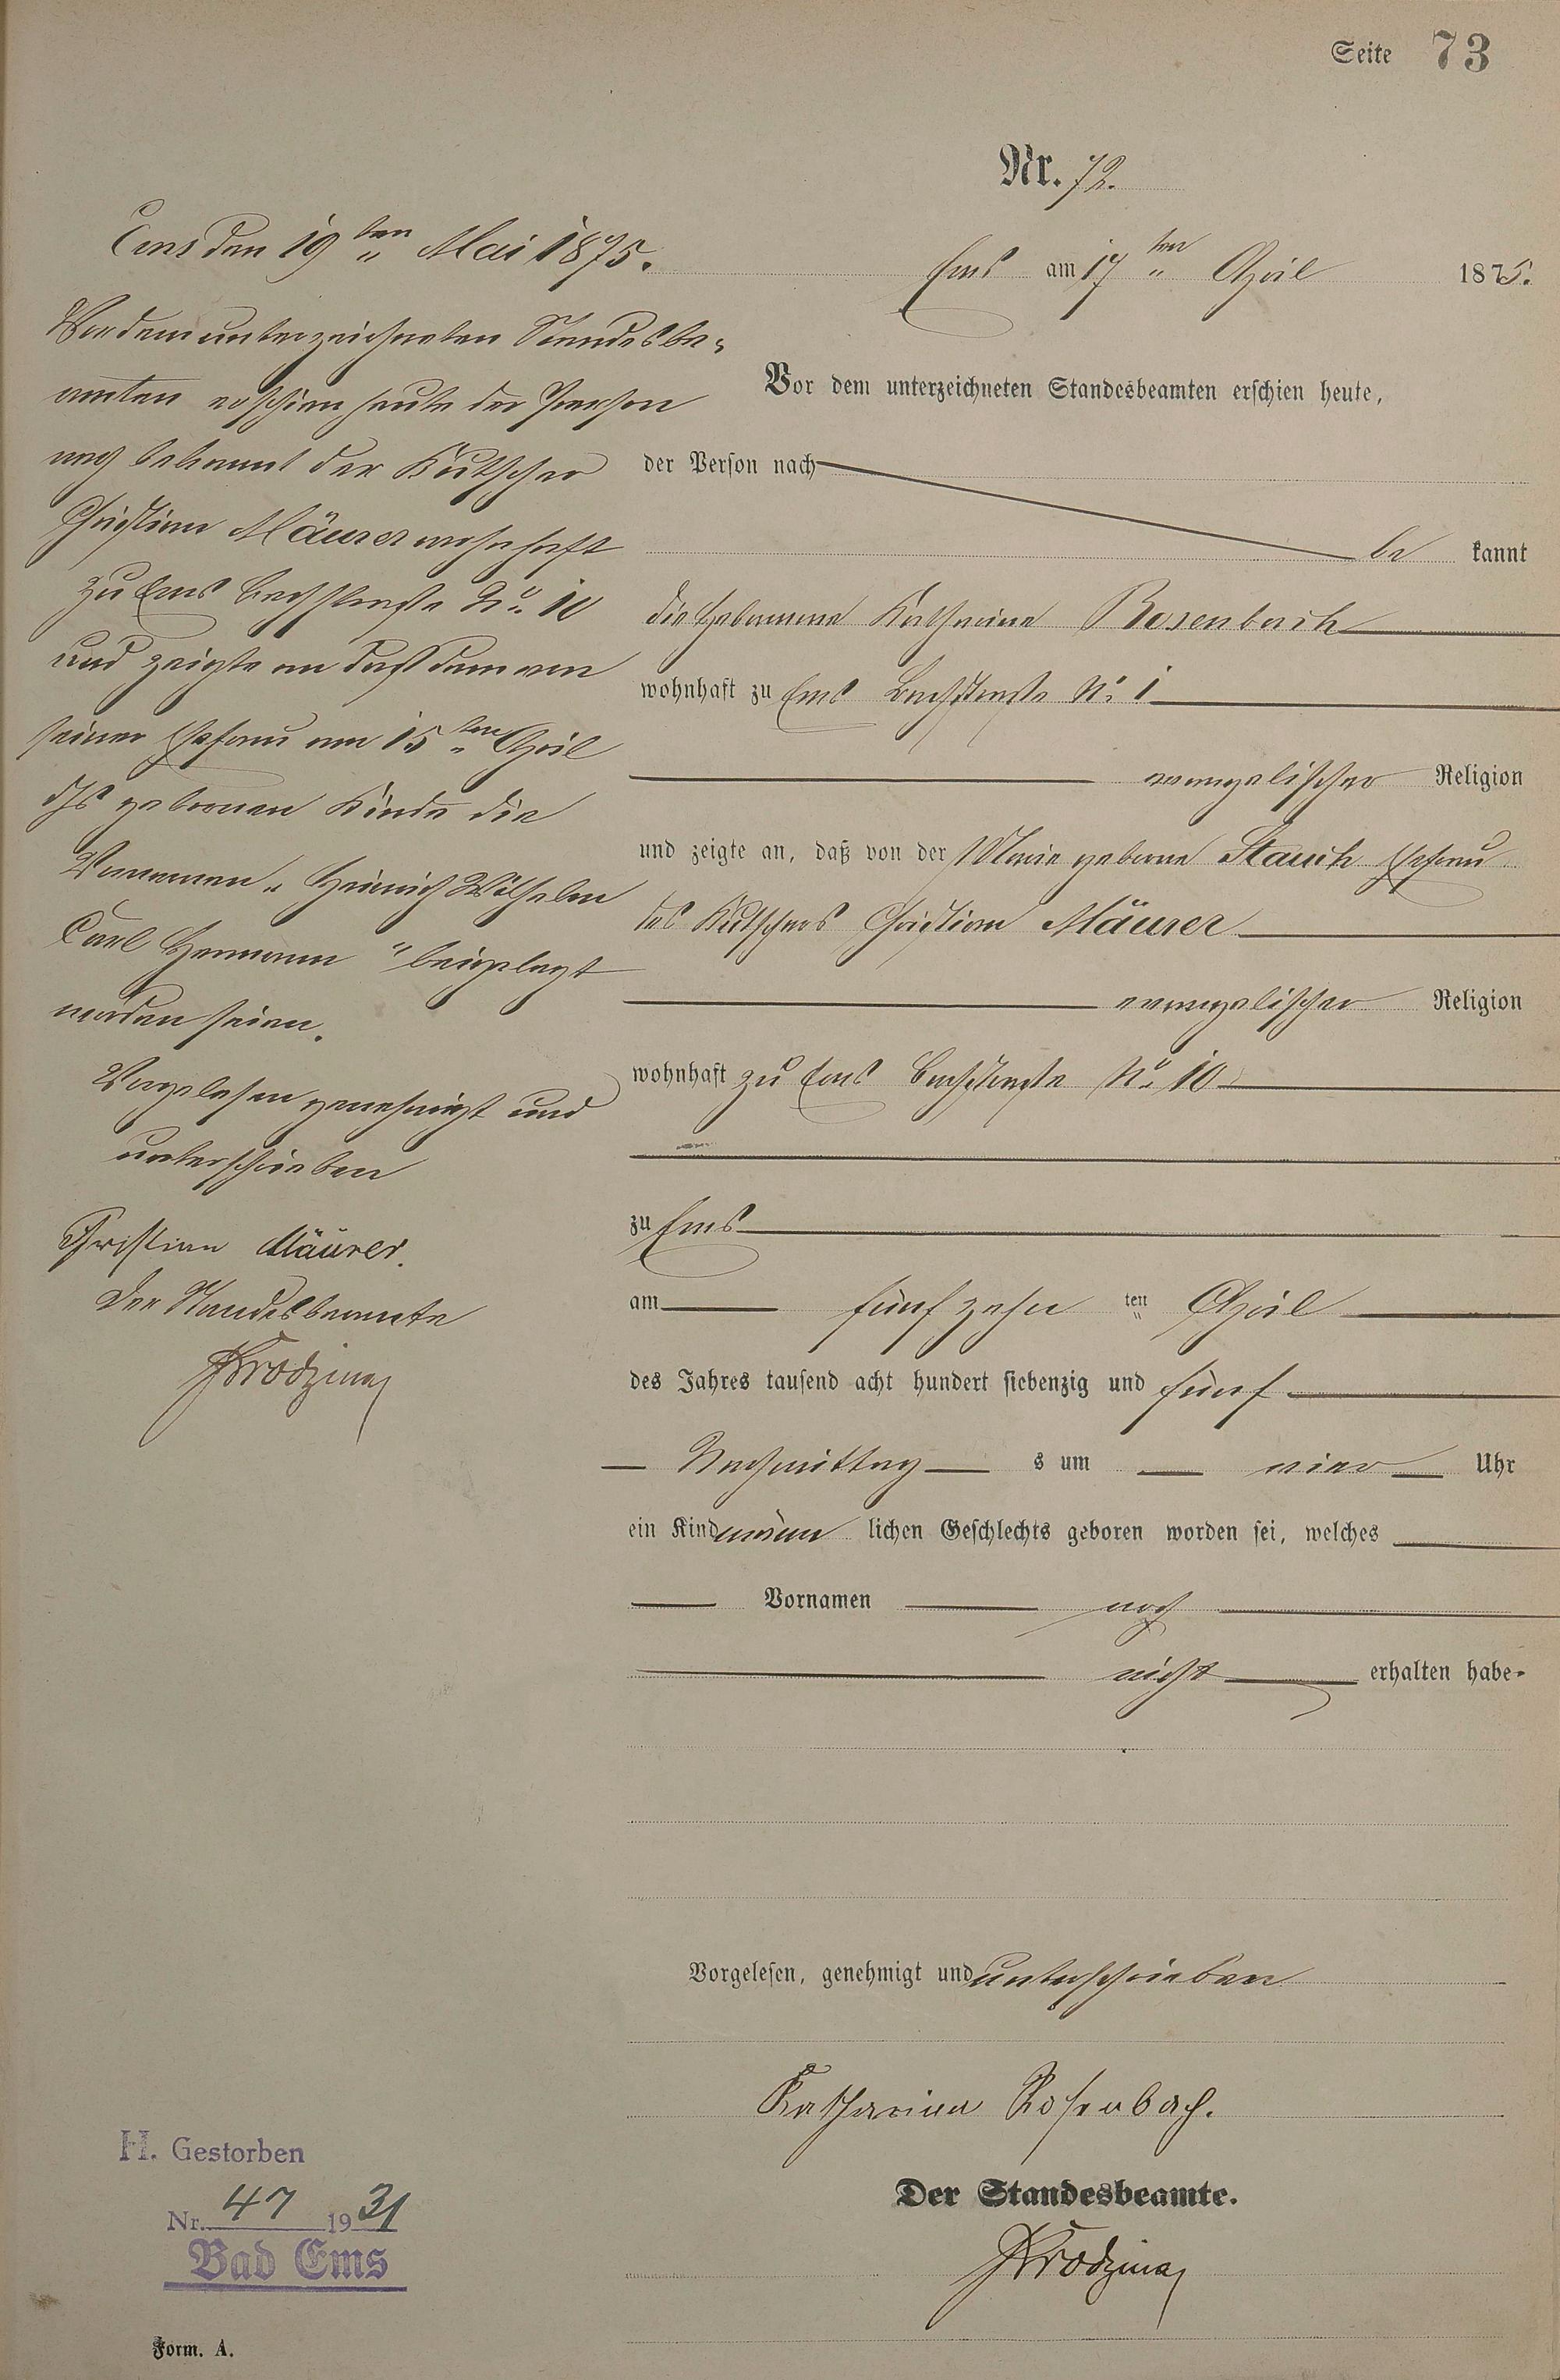 Seite 73
Nr. 72.
Ems am 17ten April 1875.
Vor dem unterzeichneten Standesbeamten erschien heute,
der Person nach
be kannt
die Hebamme Katharina Rosenbach
wohnhaft zu Ems Bachstraße No 1
evangelischer Religion
und zeigte an, daß von der Marie geborne Stauch Ehefrau
des Kutschers Christian Mäurer
evangelischer Religion
wohnhaft zu Ems Bachstraße No 10
zu Ems
am fünfzehn ten April
des Jahres tausend acht hundert siebenzig und fünf
Nachmittag s um vier Uhr
ein Kind männ lichen Geschlechts geboren worden sei, welches
Vornamen noch
nicht erhalten habe-
Vorgelesen, genehmigt und unterschrieben
Katharina Rosenbach.
Der Standesbeamte.
Ems den 19ten Mai 1875.
Vor dem unterzeichneten Standesbe-
amten erschien heute der Person
nach bekannt der Kutscher
Christian Mäurer wohnhaft
zu Ems Bachstraße No 10
und zeigte an daß dem von
seiner Ehefrau am 15ten April
ds gebornen Kinde die
Vornamen „Heinrich Wilhelm
Carl Hermann“ beigelegt
worden seien.
Vorgelesen genehmigt und
unterschrieben
Christian Mäurer.
Der Standesbeamte
H. Gestorben
Nr. 47 1931
Bad Ems
Form. A.